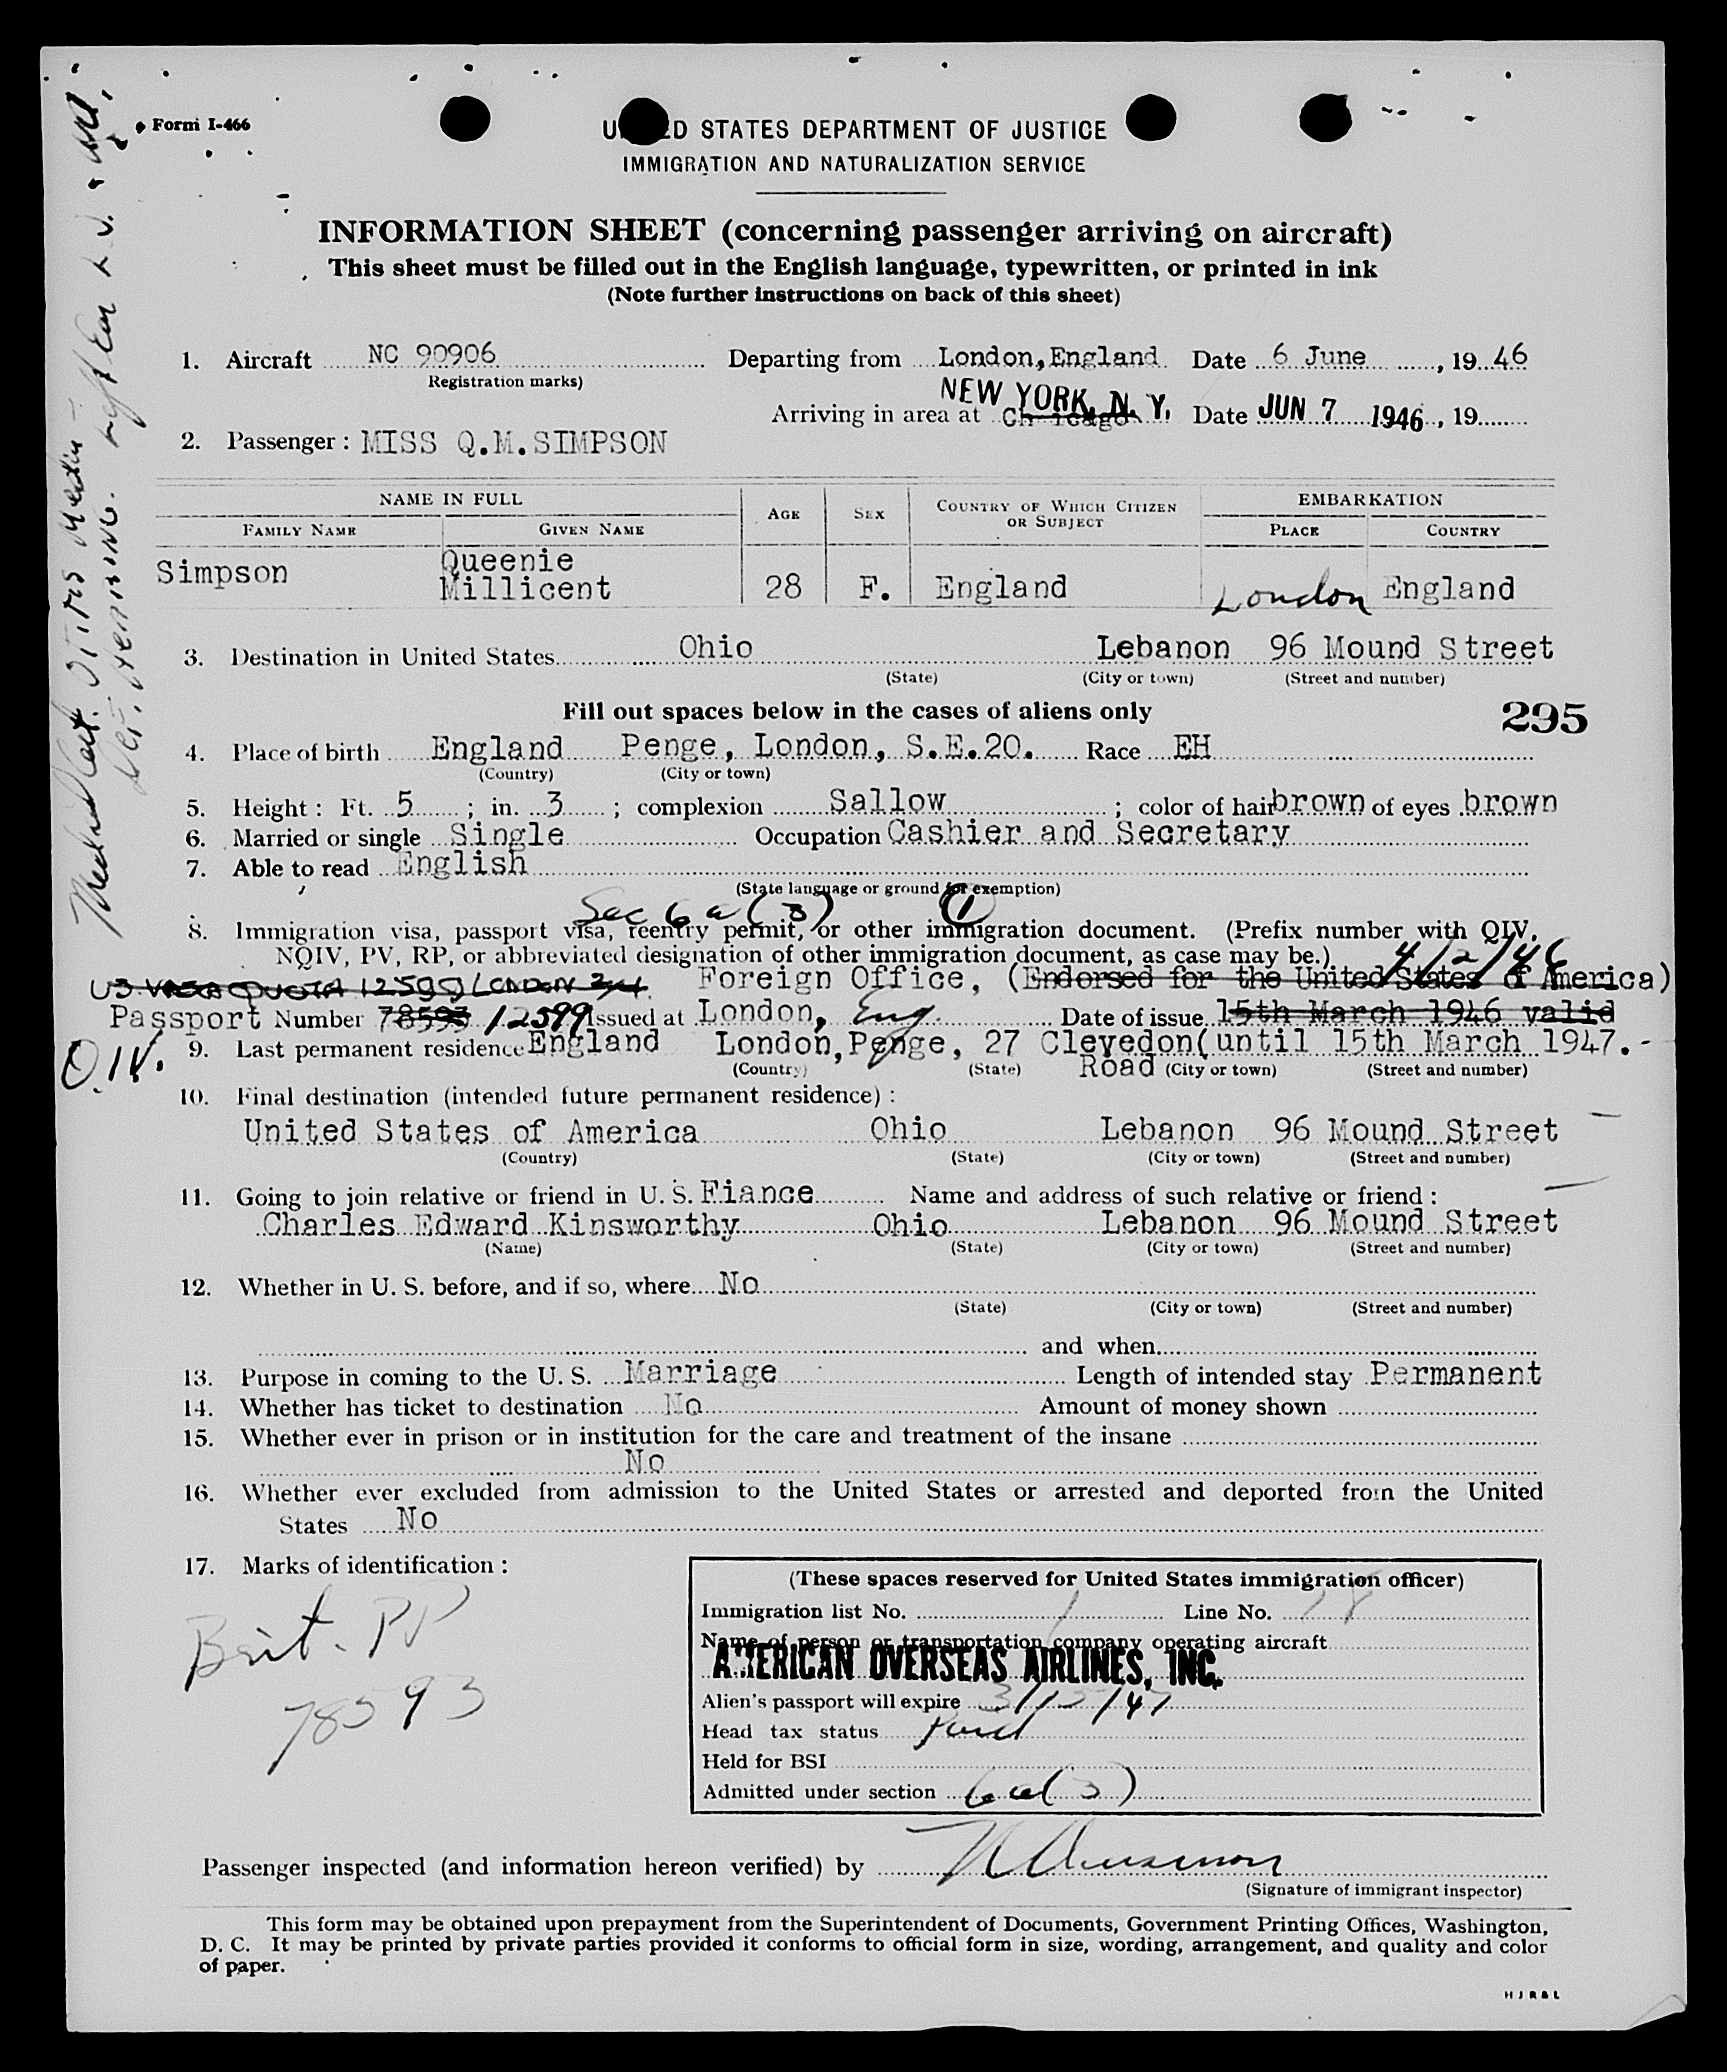 Form I-466
UNITED STATES DEPARTMENT OF JUSTICE
IMMIGRATION AND NATURALIZATION SERVICE
INFORMATION SHEET (concerning passenger arriving on aircraft)
This sheet must be filled out in the English language, typewritten, or printed in ink
(Note further instructions on back of this sheet)
1. Aircraft NC 90906 Departing from London, England Date 6 June, 1946
Registration marks)
NEW YORK, N. Y.
Arriving in area at Chicago Date JUN 7 1946, 19
2. Passenger: MISS Q.M.SIMPSON
NAME IN FULL AGE SEX COUNTRY OF WHICH CITIZEN OR SUBJECT EMBARKATION
FAMILY NAME GIVEN NAME PLACE COUNTRY
Simpson Queenie
Millicent 28 F. England London England
3. Destination in United States Ohio Lebanon 96 Mound Street
(State) (City or town) (Street and number)
Fill out spaces below in the cases of aliens only
295
4. Place of birth England Penge, London, S.E.20. Race EH
(Country) (City or town)
5. Height: Ft. 5; in. 3; complexion Sallow; color of hair brown of eyes brown
6. Married or single Single Occupation Cashier and Secretary
7. Able to read English
(State language or ground for exemption)
Sec 6 a (3) 1
8. Immigration visa, passport visa, reentry permit, or other immigration document. (Prefix number with QIV,
NQIV, PV, RP, or abbreviated designation of other immigration document, as case may be.) 4/2/46
US VISA QUOTA 12599 LONDON Foreign Office, (Endorsed for the United States of America)
Passport Number 78593 12599 Issued at London, Eng. Date of issue 15th March 1946 valid
Q.I.V. 9. Last permanent residence England London, Penge, 27 Clevedon (until 15th March 1947.-
Road
(Country) (State) (City or town) (Street and number)
10. Final destination (intended future permanent residence):
United States of America Ohio Lebanon 96 Mound Street
(Country) (State) (City or town) (Street and number)
11. Going to join relative or friend in U. S. Fiance Name and address of such relative or friend:
Charles Edward Kinsworthy Ohio Lebanon 96 Mound Street
(Name) (State) (City or town) (Street and number)
12. Whether in U. S. before, and if so, where No
(State) (City or town) (Street and number)
and when
13. Purpose in coming to the U. S. Marriage Length of intended stay Permanent
14. Whether has ticket to destination No Amount of money shown
15. Whether ever in prison or in institution for the care and treatment of the insane
No
16. Whether ever excluded from admission to the United States or arrested and deported from the United
States No
17. Marks of identification:
Brit. PP
78593
(These spaces reserved for United States immigration officer)
Immigration list No. 1 Line No. 18
Name of person or transportation company operating aircraft
AMERICAN OVERSEAS AIRLINES, INC.
Alien's passport will expire 3/15/47
Head tax status Paid
Held for BSI
Admitted under section 6a(3)
Passenger inspected (and information hereon verified) by
(Signature of immigrant inspector)
This form may be obtained upon prepayment from the Superintendent of Documents, Government Printing Offices, Washington,
D. C. It may be printed by private parties provided it conforms to official form in size, wording, arrangement, and quality and color
of paper.
H J R & L
Medical Cert. OTITIS Media
Def. Hearing.